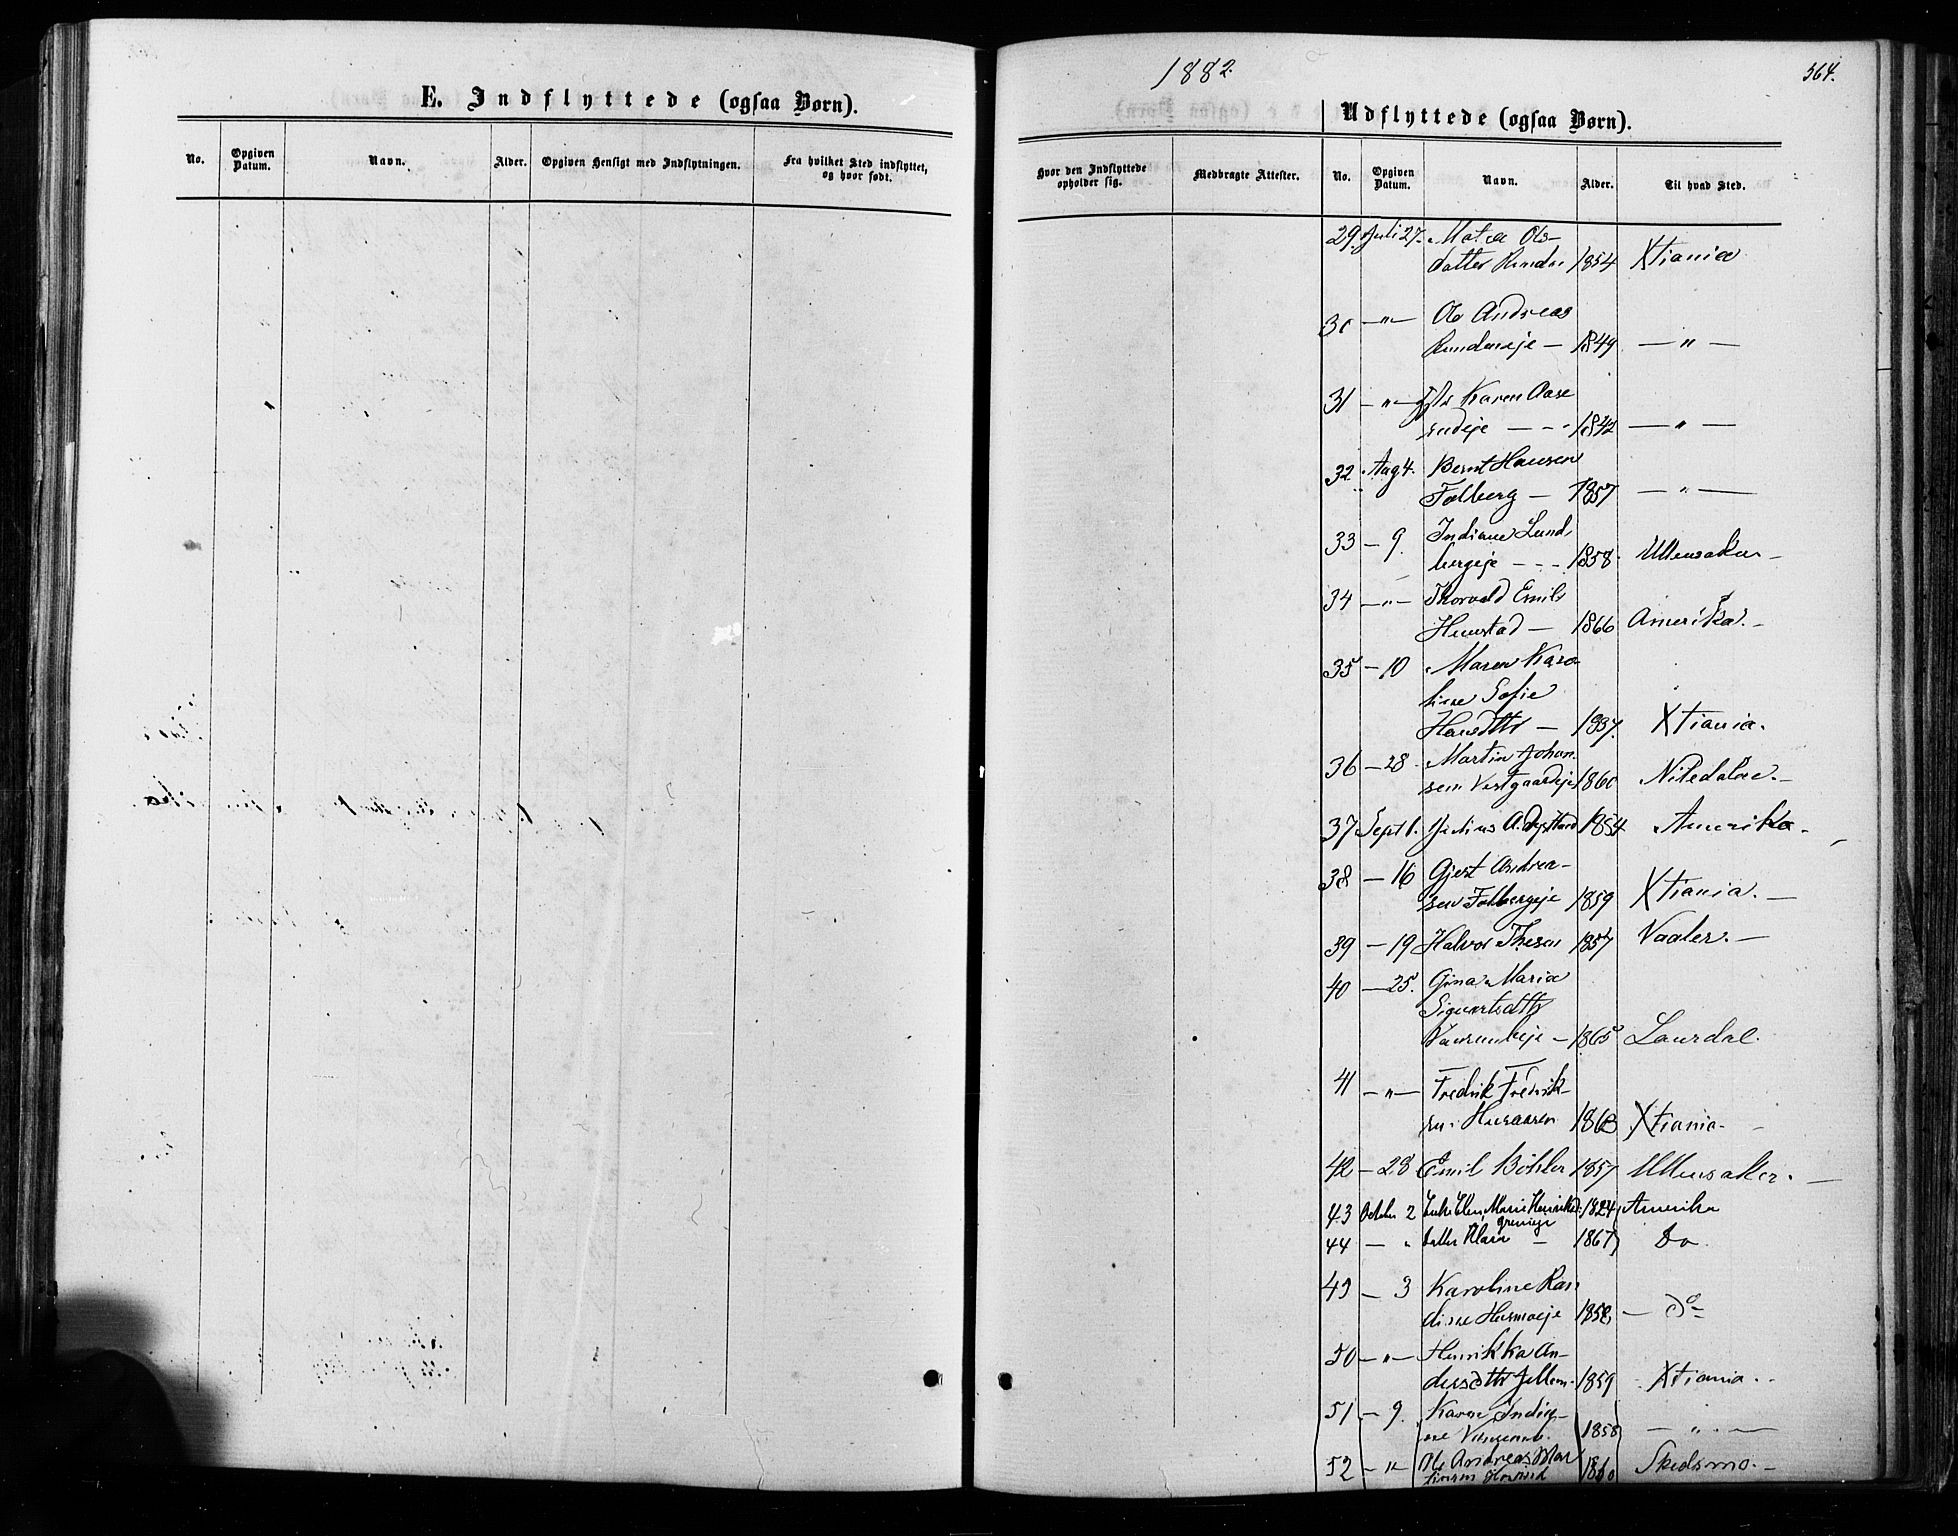 E. Indflyttede (ogsaa Børn).
No.
Opgiven Datum.
Navn.
Alder.
Opgiven Hensigt med Indflytningen.
Fra hvilket Sted indflyttet, og hvor født.
1882.
364.
Udflyttede (ogsaa Børn).
Hvor den Indflyttede opholder sig.
Medbragte Attester.
No.
Opgiven Datum.
Navn.
Alder.
Til hvad Sted.
29. Juli 27. Matea Ols-
datter 1854 Xtiania
30 — " — Ole Andreas
Rundeneje — 1849 — " —
31 — " — Karen Aase
rudeje — - - 1842 — " —
32 Aug 4. Bernt Hansen
Falberg — 1857 — " —
33 — 9. Indiane Lund
bergeje - - - 1858. Ullensaker —
34 — " — Thorvald Emil
Hemstad — 1866 Amerika. —
35 — 10 Maren Karo
line Sofie
Hansdttr — 1837. Xtiania.
36 — 28. Martin Johan
sen Vestgaardeje 1860 Nitedalen. —
37 Sept 1. Julius A. 1854 Amerika.
38 — 16 Gjert Andrea-
sen Falbergeje 1859 Xtiania. —
39 — 19 Halvor Thesen 1857 Vaaler. —
40 — 25. Gina Maria
Siguartsdttr
— 1865 Laurdal.
41 — " — Fredrik Fredrik-
sen 1863 Xtiania.
42 — 28 Emil Bøhler 1857 Ullensaker. —
43 October 2 Enke Ellen Marie 1824 Amerika
44 — " datter Klara — 1867 Do.
49 — 3 Karoline Ran
dine Husmoeje 1858 — Do —
50 — " — Henrikka An-
dersdttr 1859 Xtiania.
51 — 9. Karen Indian-
ne 1858 — " —
52 — " — Ol. Andreas Mar
tinsen 1860 Skedsmo. —